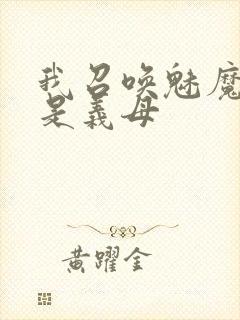 我召唤魅魔
是義母
黄躍金